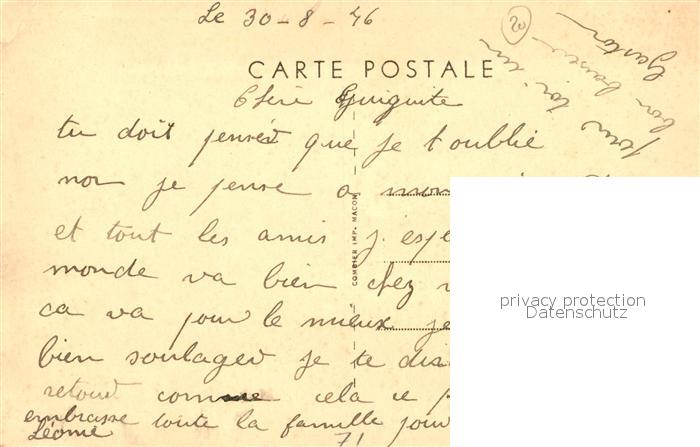 Le 30-8-46
20
CARTE POSTALE
Chère Guiguite
tu doit pensée que je t'oublie
non je pense a mon
et tout les amis j. espe
monde va bien chez
ca va pour le mieux je
bien soulager je te dis
retour comme cela ce p
embrasse toute la famille pour
Léonie
71
pour toi un
bon baiser
Gaston
COMBIER IMP. MACON
privacy protection
Datenschutz